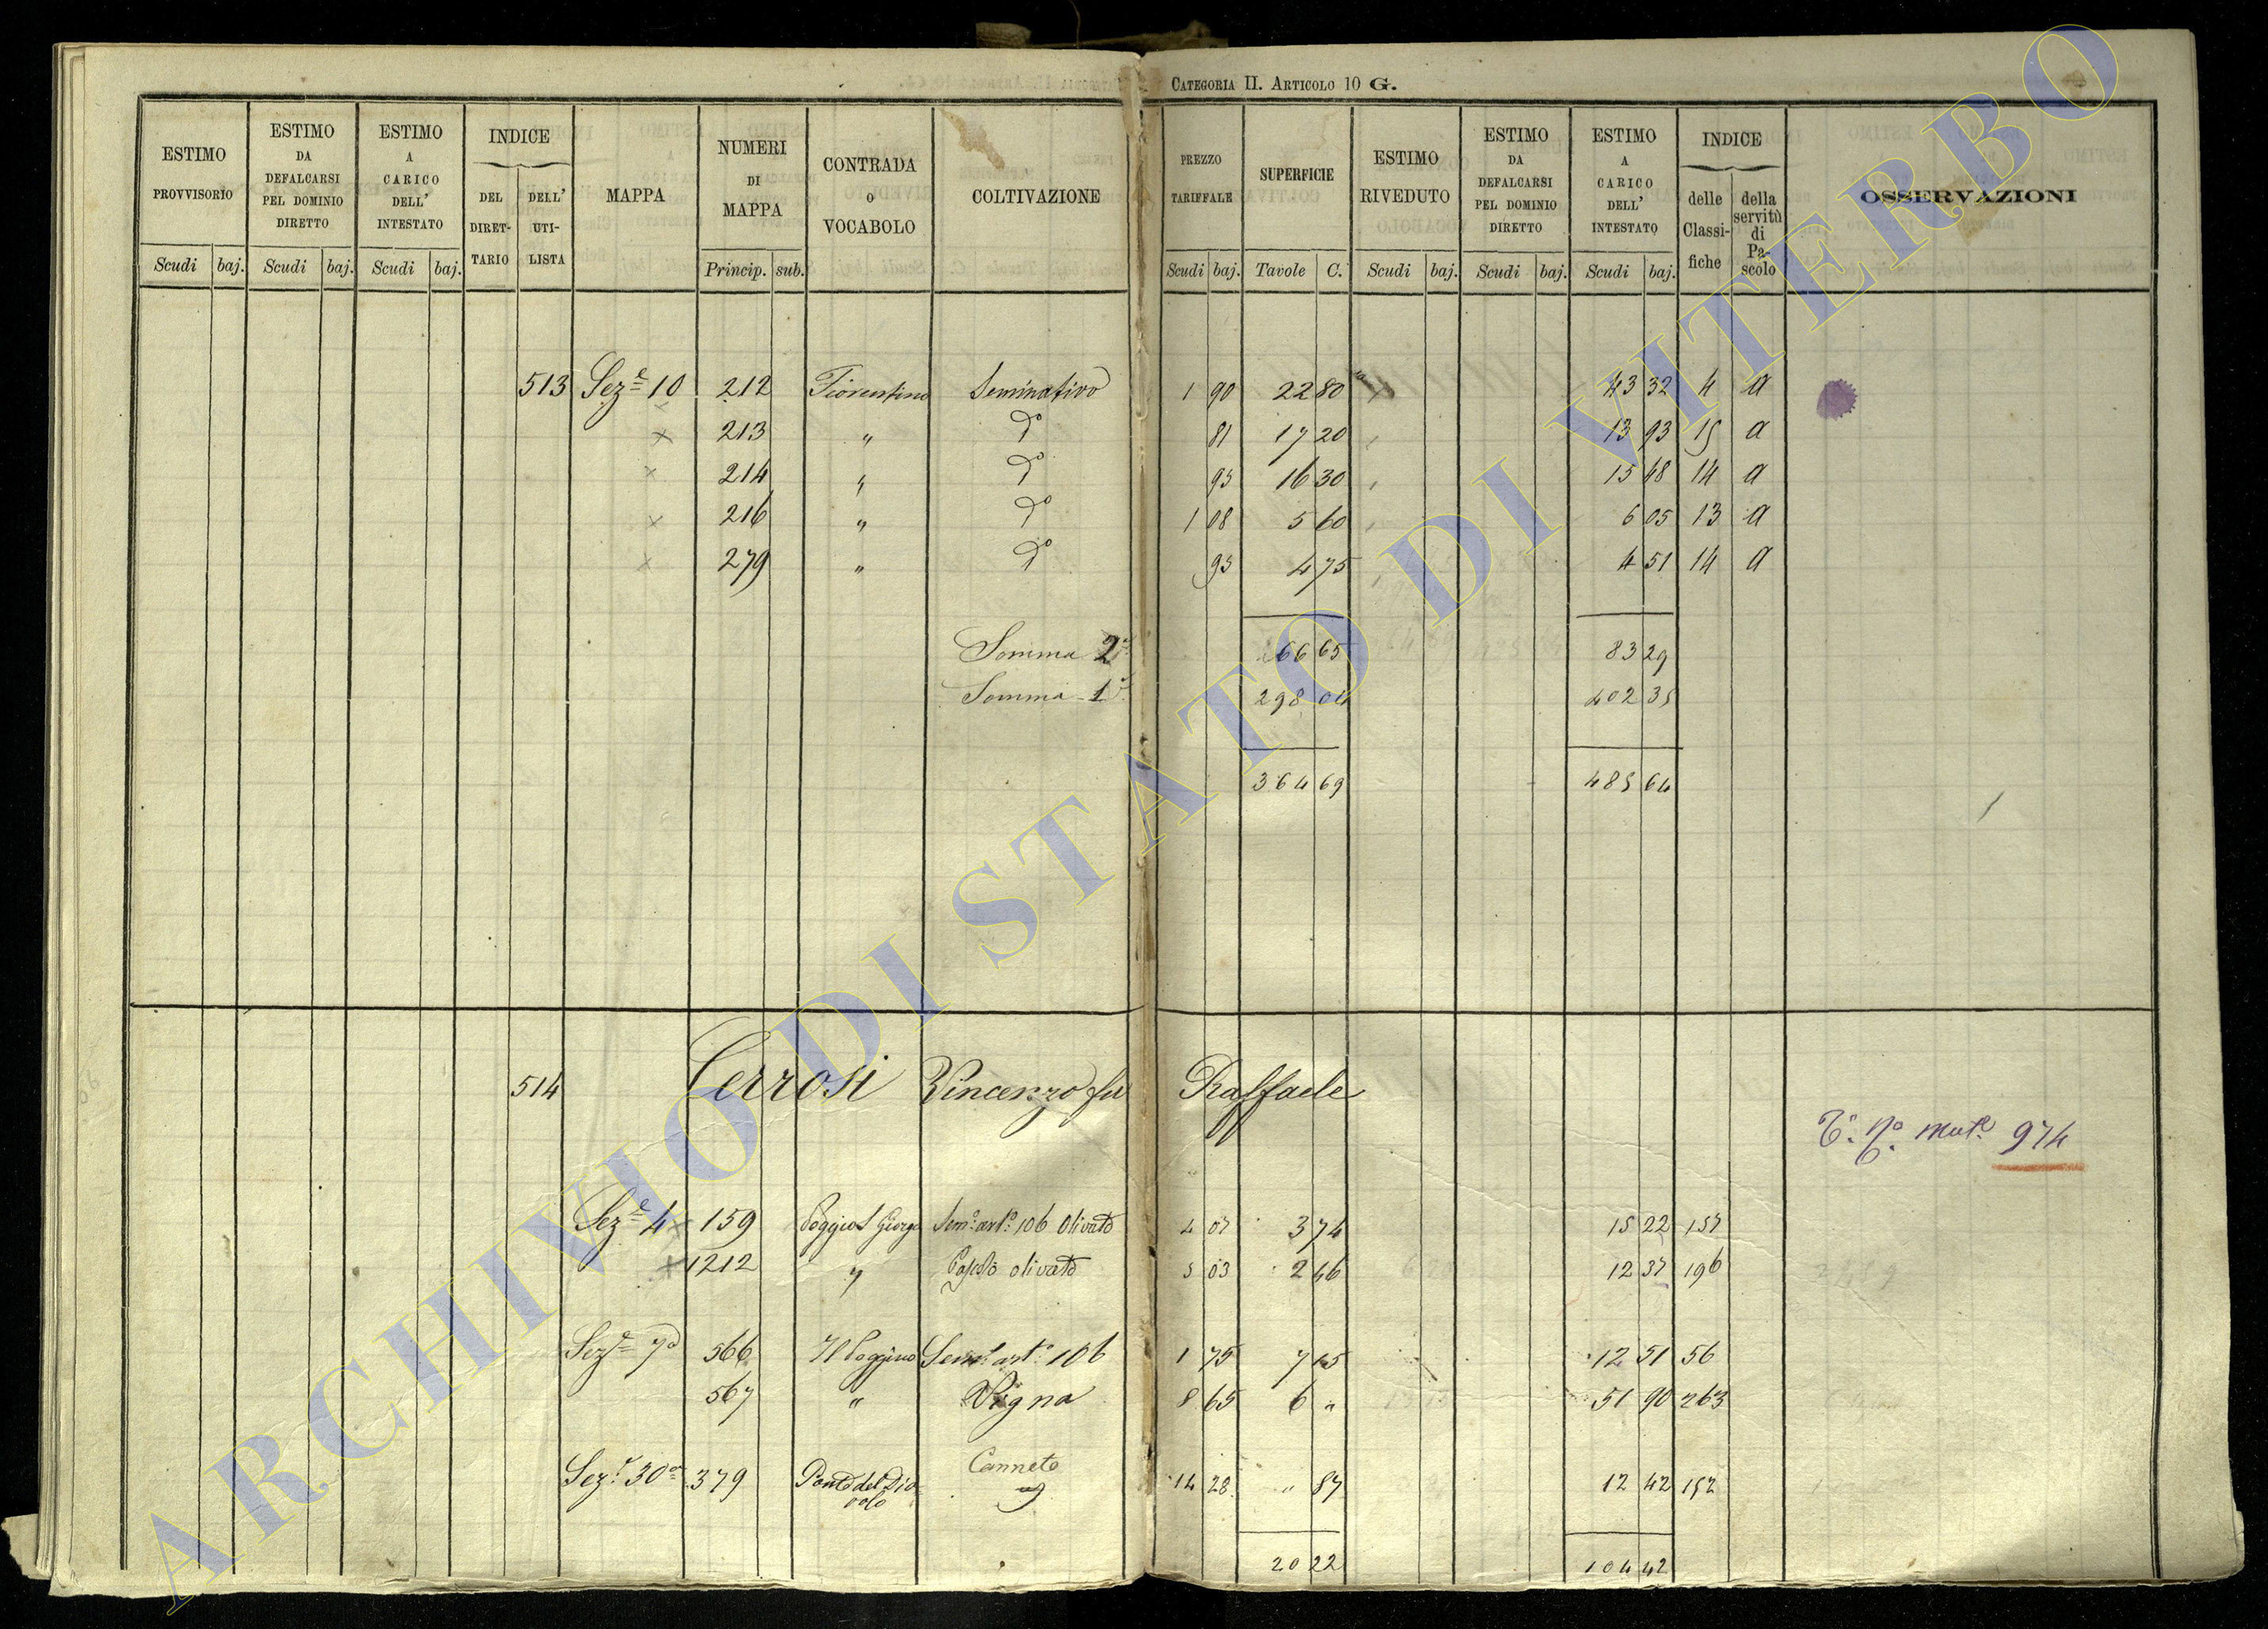 CATEGORIA II. ARTICOLO 10 G.
ESTIMO PROVVISORIO
ESTIMO DA DEFALCARSI PEL DOMINIO DIRETTO
ESTIMO A CARICO DELL' INTESTATO
INDICE
DEL DIRET-TARIO
DELL' UTI-LISTA
MAPPA
NUMERI DI MAPPA
CONTRADA O VOCABOLO
COLTIVAZIONE
PREZZO TARIFFALE
SUPERFICIE
ESTIMO RIVEDUTO
ESTIMO DA DEFALCARSI PEL DOMINIO DIRETTO
ESTIMO A CARICO DELL' INTESTATO
INDICE
delle Classi-fiche
della servitù di Pa-scolo
OSSERVAZIONI
Scudi baj. Scudi baj. Scudi baj. Princip. sub. Scudi baj. Tavole C. Scudi baj. Scudi baj. Scudi baj.
513 Seze 10 212 Fiorentino Seminativo 1 90 22 80 43 32 4 a
213 " Do 81 17 20 13 93 15 a
214 " Do 95 16 30 15 48 14 a
216 " Do 1 08 5 60 6 05 13 a
279 " Do 95 4 75 4 51 14 a
Somma 2a 66 65 83 29
Somma 1a 298 04 402 35
364 69 485 64
514 Cerrosi Vincenzo fu Raffaele
To. No. mute. 974
Seze 4 159 Poggio S Giorgio Semo arto 106 Olivato 4 07 3 74 15 22 157
1212 " Pascolo olivato 5 03 2 46 12 37 196
Seze 7a 566 Il Poggino Semo arto 106 1 75 7 15 12 51 56
567 " Vigna 8 65 6 " 51 90 263
Seze 30a 379 Ponte del Diavolo Canneto 14 28 " 87 12 42 152
20 22 104 42
ARCHIVIO DI STATO DI VITERBO